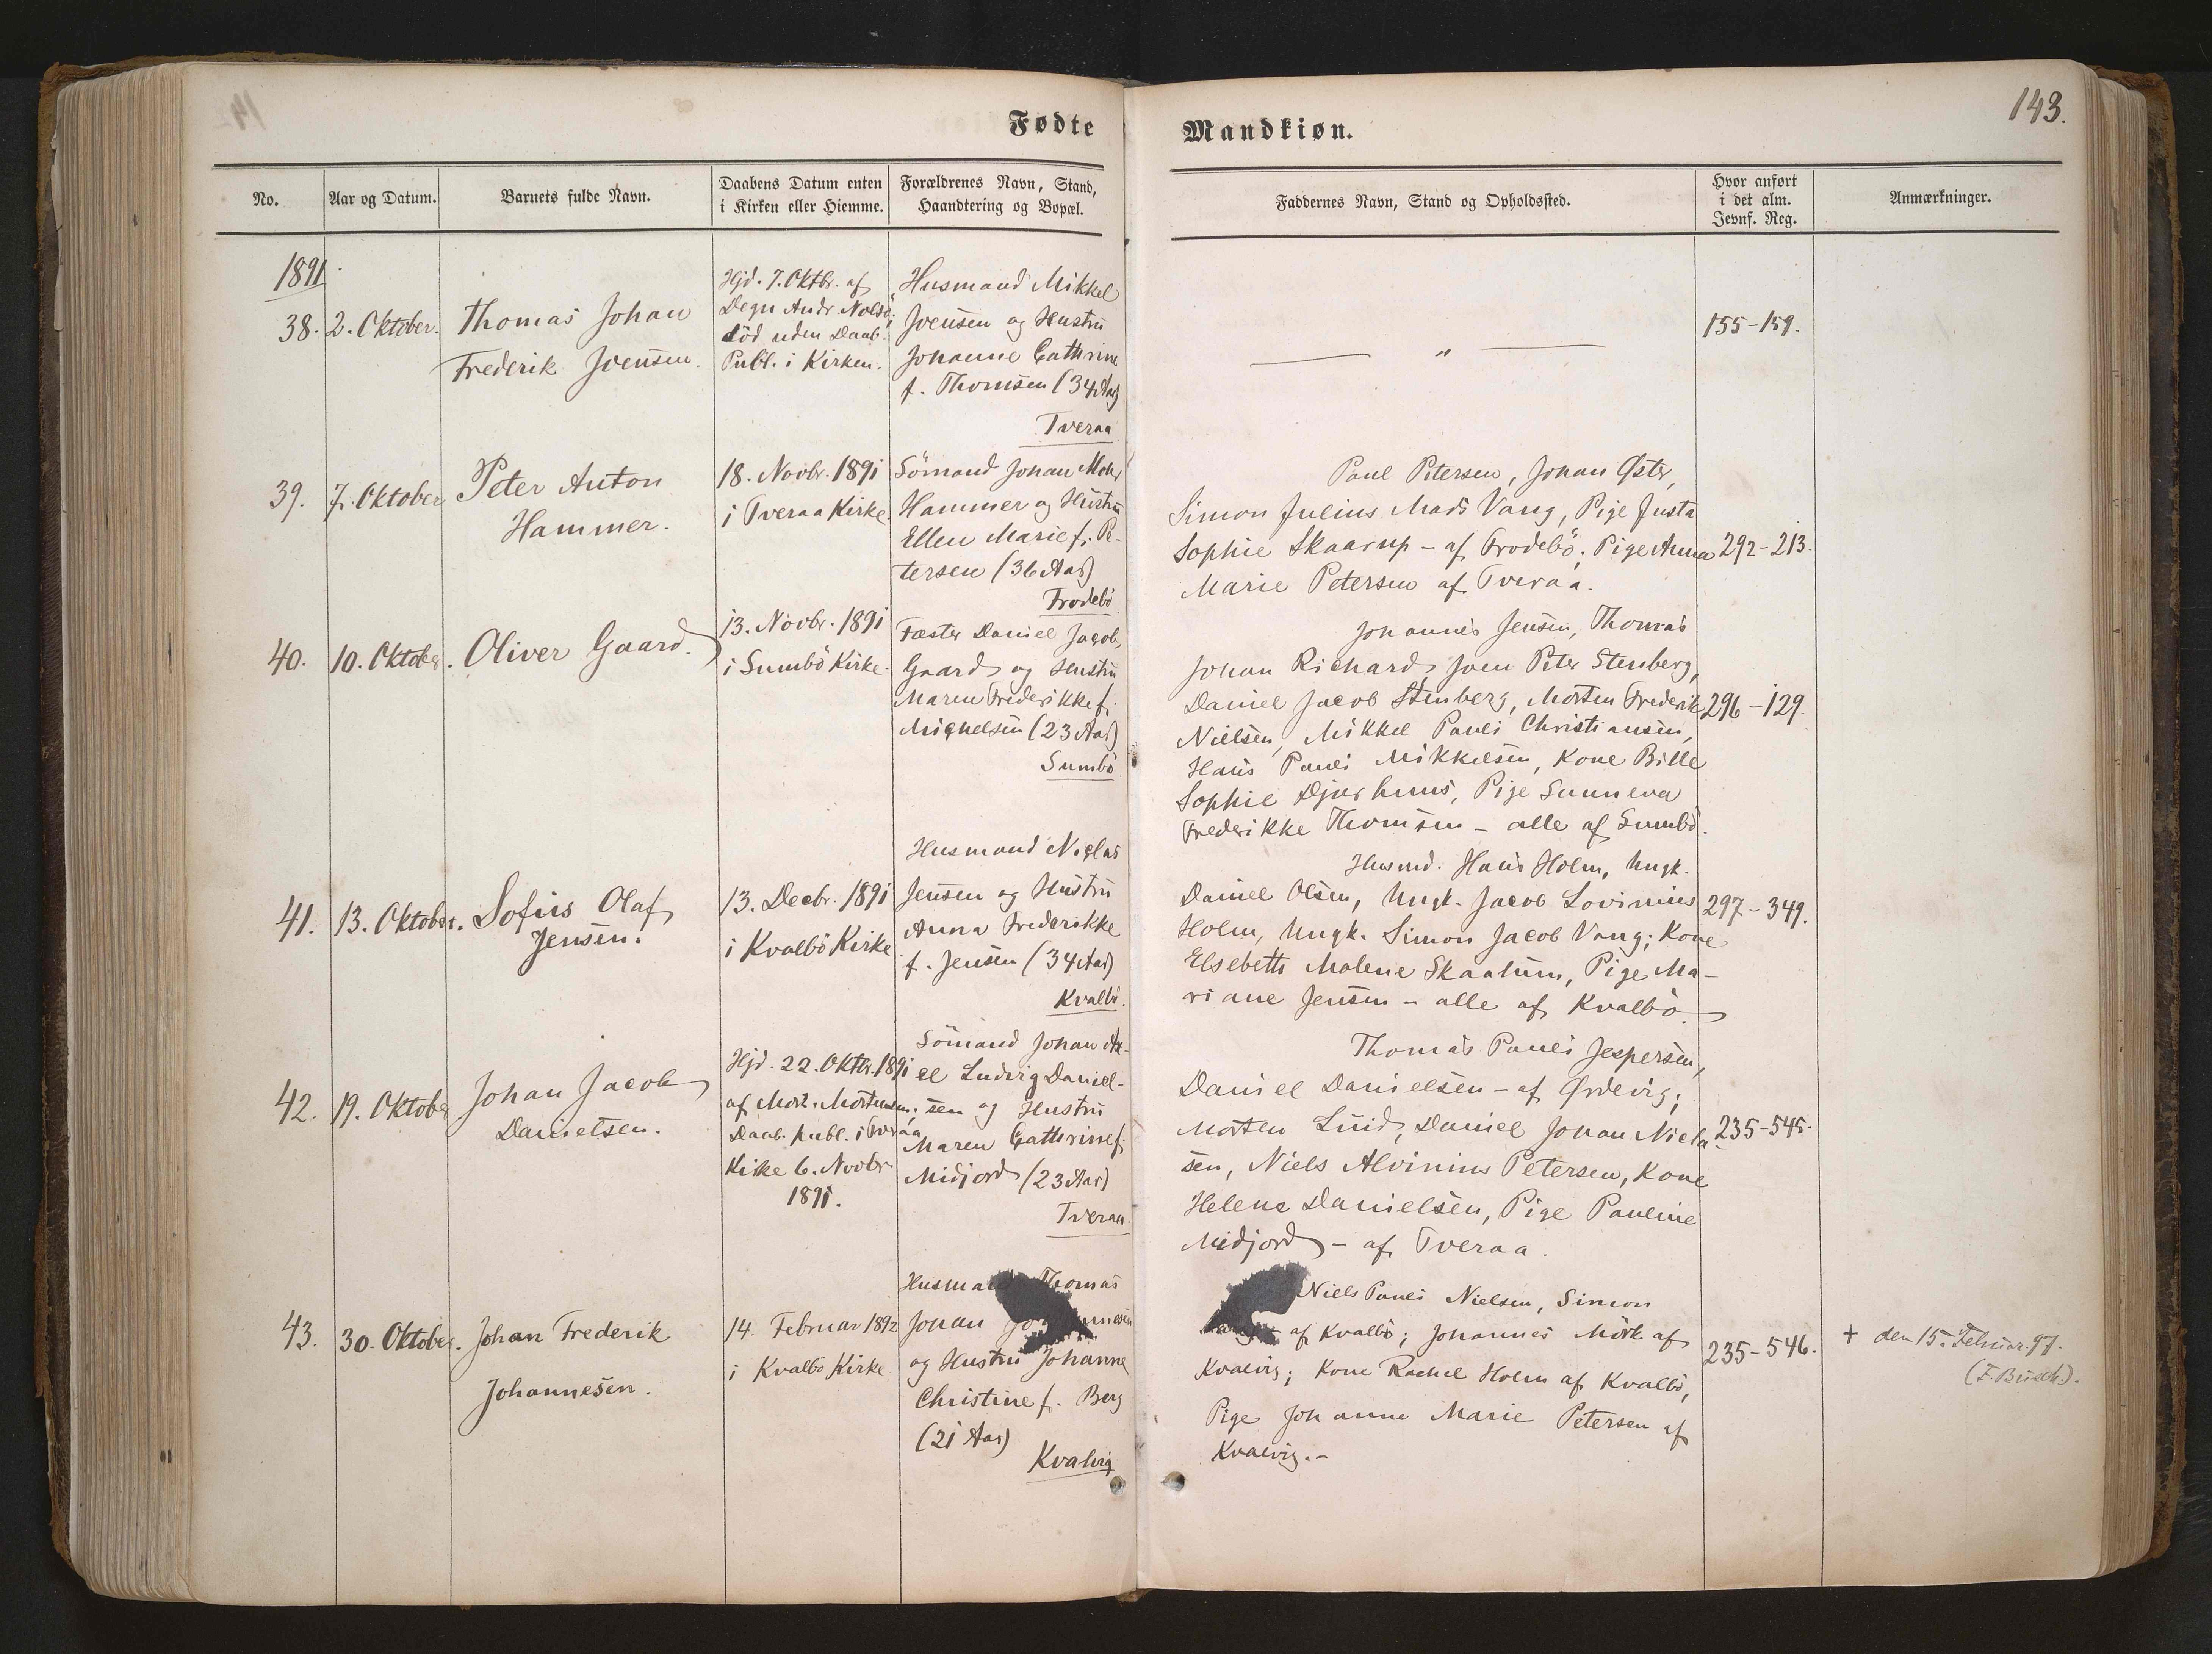 143.
Fødte
Mandkiøn.
No.
Aar og Datum.
Barnets fulde Navn.
Daabens Datum enten
i Kirken eller Hiemme.
Forældrenes Navn, Stand,
Haandtering og Bopæl.
Faddernes Navn, Stand og Opholdssted.
Hvor anført
i det alm.
Jevnf. Reg.
Anmærkninger.
1891.
38.
2. Oktober.
Thomas Johan
Frederik Joensen.
Hjd. 7. Oktbr. af
Degn Andr Nolsö;
död uden Daab.
Publ. i Kirken.
Husmand Mikkel
Joensen og Hustru
Johanne Cathrine
f. Thomsen (34 Aar)
Tveraa
— " —
155-159.
39.
7. Oktober
Peter Anton
Hammer.
18. Novbr. 1891
i Tveraa Kirke.
Sömand Johan Mohr
Hammer og Hustru
Ellen Marie f. Pe-
tersen (36 Aar)
Frodebö
Paul Petersen, Johan Øster,
Simon Julius Mads Vang, Pige Justa
Sophie Skaarup - af Frodebö; Pige Anna
Marie Petersen af Tveraa.
292-213.
40.
10. Oktober.
Oliver Gaard.
13. Novbr. 1891
i Sumbö Kirke.
Fæster Daniel Jacob
Gaard og Hustru
Maren Frederikke f.
Michelsen (23 Aar)
Sumbö
Johannes Jensen, Thomas
Johan Richard, Joen Peter Stenberg,
Daniel Jacob Stenberg, Morten Frederik
Nielsen, Mikkel Pauli Christiansen,
Hans Pauli Mikkelsen, Kone Bille
Sophie Djurhuus, Pige Sunneva
Frederikke Thomsen - alle af Sumbö.
296-129.
41.
13. Oktober.
Sofus Olaf
Jensen.
13. Decbr. 1891
i Kvalbö Kirke
Husmand Niclas
Jensen og Hustru
Anna Frederikke
f. Jensen (34 Aar)
Kvalbö.
Husmd. Hans Holm, Ungk.
Daniel Olsen, Ungk. Jacob Lovinius
Holm, Ungk. Simon Jacob Vang; Kone
Elsebeth Malene Skaalum, Pige Ma-
riane Jensen - alle af Kvalbö.
297-349.
42.
19. Oktober
Johan Jacob
Danielsen.
Hjd. 22. Oktbr. 1891
af Mort. Mortensen;
Daab. publ. i Tveraa
Kirke 6. Novbr
1891.
Sömand Johan
el Ludvig Daniel-
sen og Hustru
Maren Cathrine f.
Midjord (23 Aar)
Tveraa.
Thomas Pauli Jespersen,
Daniel Danielsen - af Ørdevig;
Morten Luid, Daniel Johan Niel-
sen, Niels Alvinius Petersen, Kone
Helene Danielsen, Pige Pauline
Midjord - af Tveraa.
235-545.
43.
30. Oktober.
Johan Frederik
Johannesen.
14. Februar 1892
i Kvalbö Kirke
Husmand Thomas
Johan
og Hustru Johanne
Christine f. Berg
(21 Aar)
Kvalvig
Niels Pauli Nielsen, Simon
af Kvalbö; Johannes Mörk af
Kvalvig; Kone Rachel Holm af Kvalbö,
Pige Johanne Marie Petersen af
Kvalvig.-
235-546.
+ den 15. Februar. 97.
(F. Busch.).